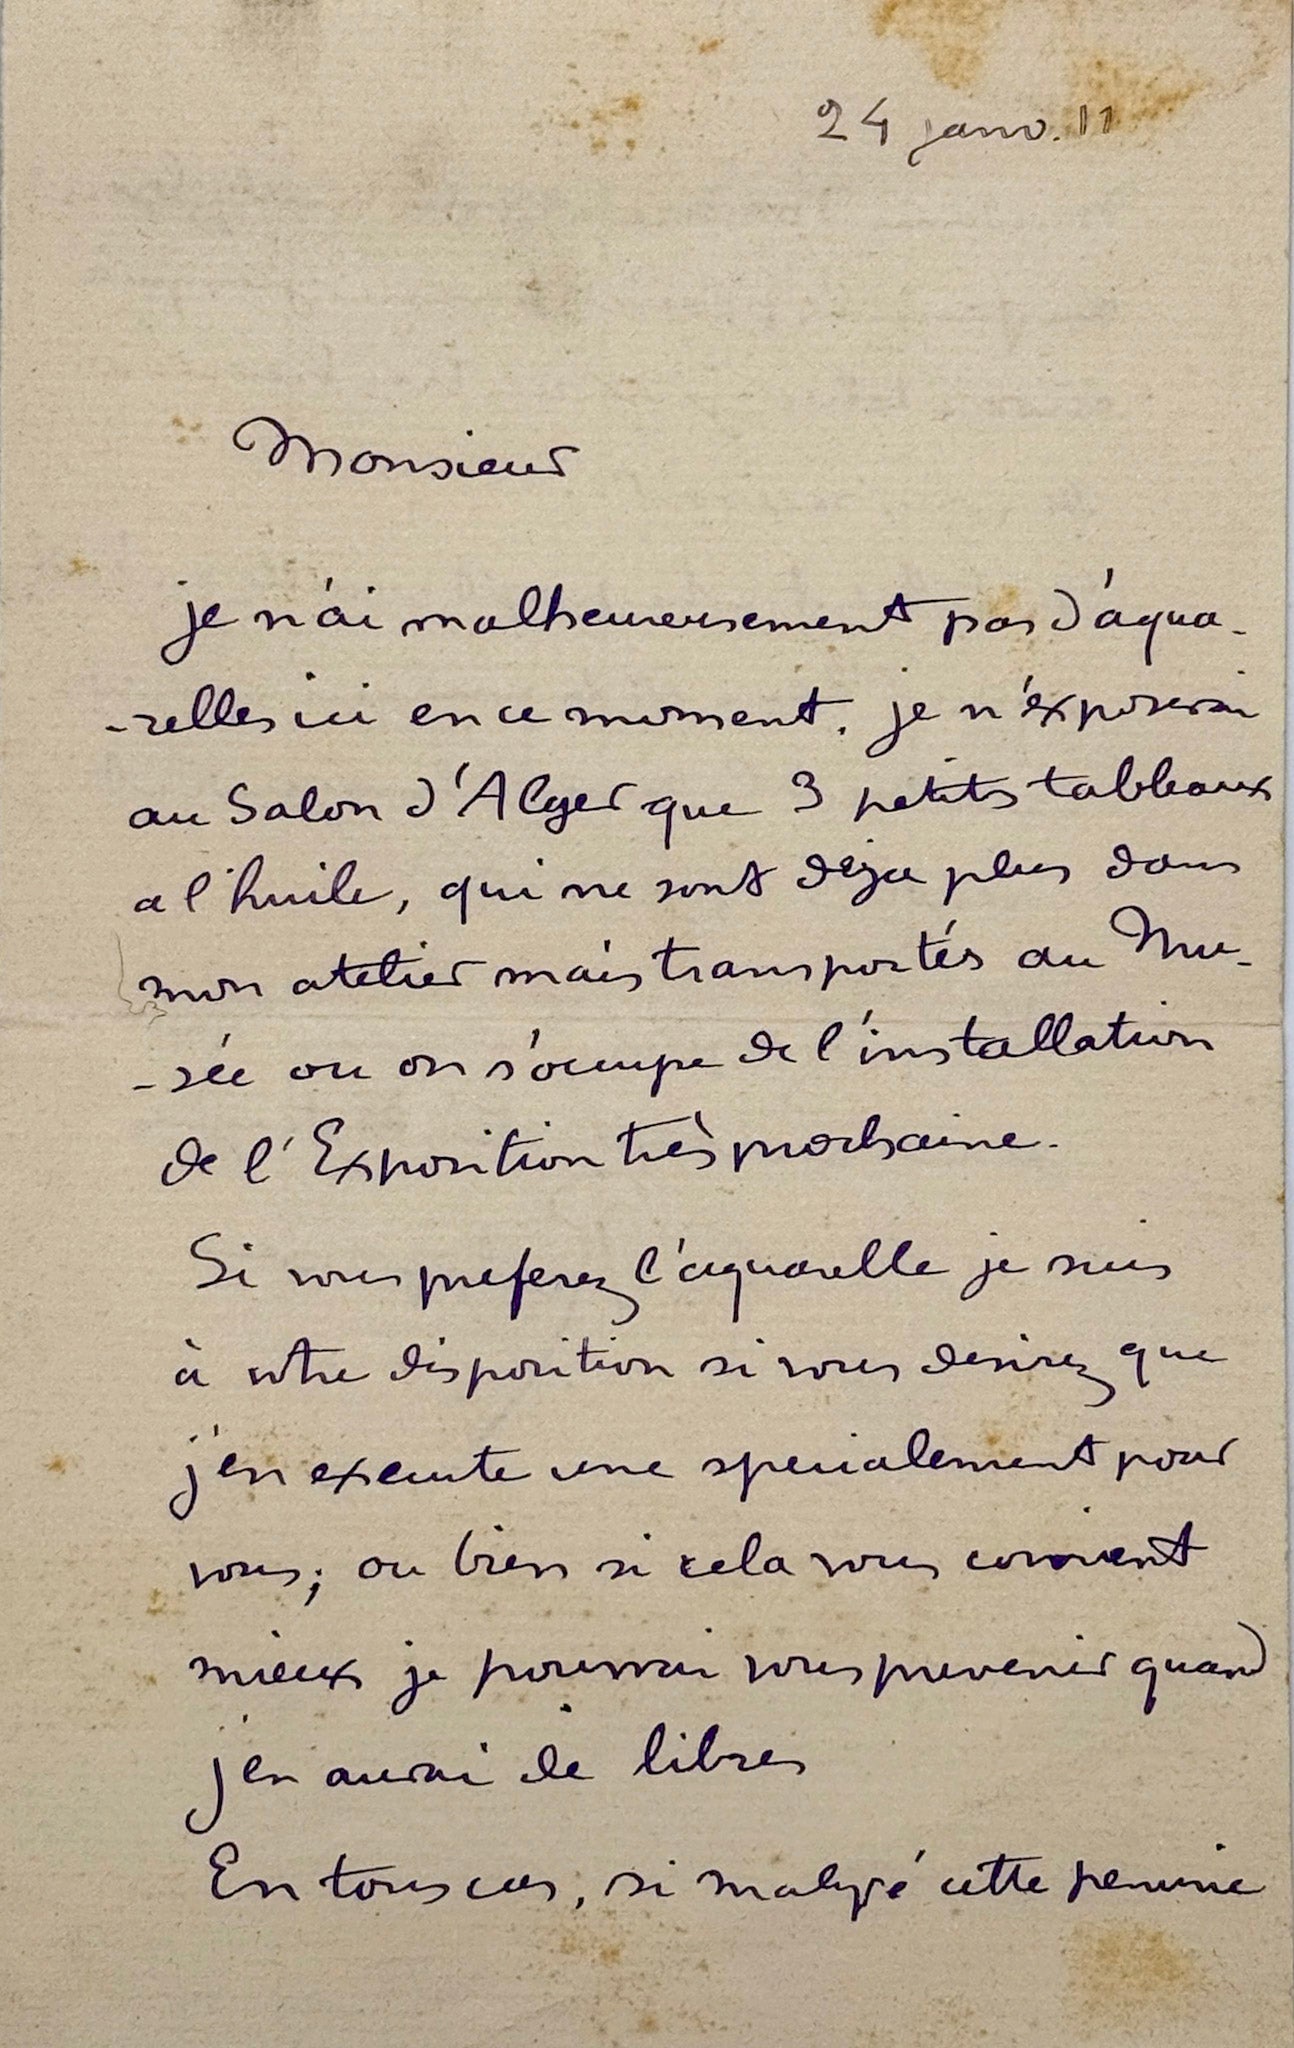 24 janv. 11
Monsieur
je n'ai malheureusement pas d'aqua-
-relles ici en ce moment. je n'exposerai
au Salon d'Alger que 3 petits tableaux
a l'huile, qui ne sont déja plus dans
mon atelier mais transportés au Mu-
-sée ou on s'occupe de l'installation
de l'Exposition très prochaine.
Si vous preferez l'aquarelle je suis
à votre disposition si vous desirez que
j'en execute une specialement pour
vous; ou bien si cela vous convient
mieux je pourrai vous prevenir quand
j'en aurai de libres
En tous cas, si malgré cette penurie